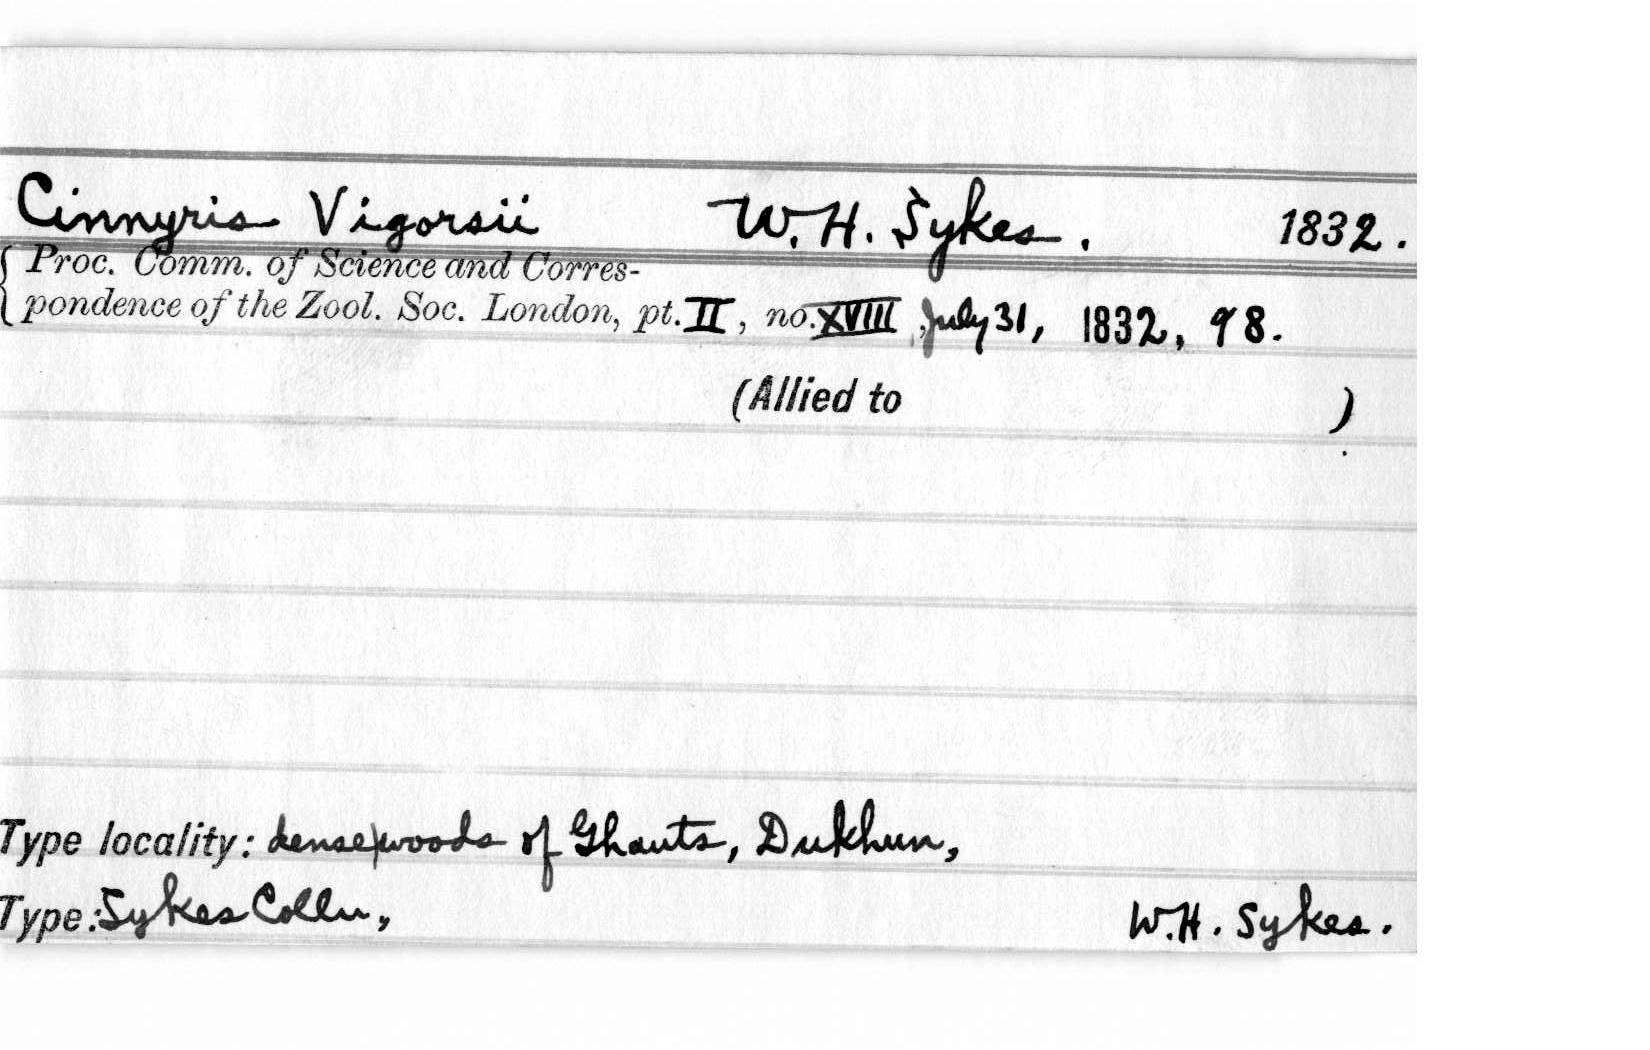 Cinnyris Vigorsii W. H. Sykes. 1832.
Proc. Comm. of Science and Corres-
pondence of the Zool. Soc. London, pt. II, no. XVIII, July 31, 1832, 98.
(Allied to )
Type locality: dense woods of Ghauts, Dukhun,
Type: Sykes Colln, W. H. Sykes.